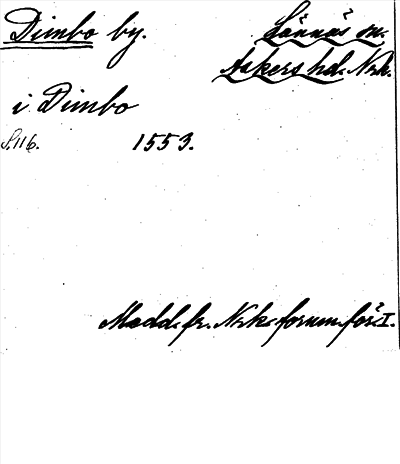 Dimbo by.
Lännäs sn.
Askers hd. Nrk.
i Dimbo
S. 116.
1553.
Medd. fr. Nrks fornm. för. I.